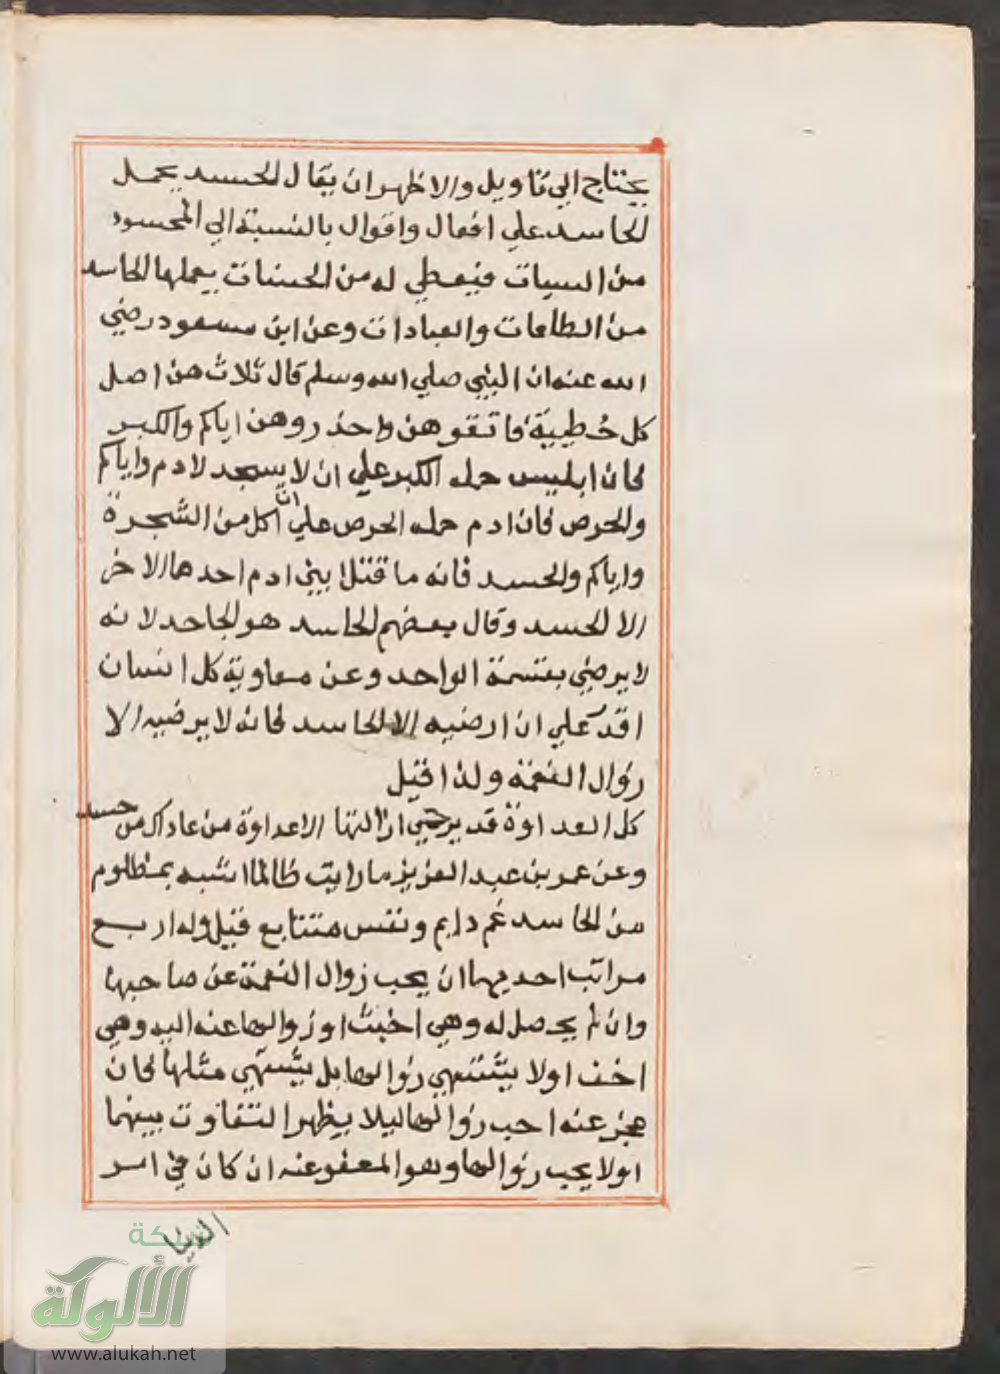 يحتاج الي تاويل والاظهر ان يقال الحسد يحمل
الحاسد علي افعال واقوال بالنسبة الي المحسود
من السيات فيعطي له من الحسنات يعملها الحاسد
من الطاعات والعبادات وعن ابن مسعود رضي
الله عنه ان النبي صلي الله وسلم قال ثلاث هن اصل
كل خطيية فاتقوهن واحذروهن اياكم والكبر
فان ابليس حمله الكبر علي ان لا يسجد لادم واياكم
والحرص فان ادم حمله الحرص علي ان اكل من الشجرة
واياكم والحسد فانه ما قتل ابني ادم احدهما الاخر
الا الحسد وقال بعضهم الحاسد هو الجاحد لانه
لا يرضي بقسمة الواحد وعن معاوية كل انسان
اقدر علي ان ارضيه الا الحاسد فانه لا يرضيه الا
زوال النعمة ولذا قيل
كل العداوة قد يرجي ازالتها الا عداوة من عاداك من حسد
وعن عمر بن عبد العزيز ما رايت ظالما اشبه بمظلوم
من الحاسد غم دايم ونفس متتابع قيل وله اربع
مراتب احديها ان يحب زوال النعمة عن صاحبها
وان لم يحصل له وهي اخبث او زوالها عنه اليه وهي
اخف اولا يشتهي زوالها بل يشتهي مثلها فان
عجز عنه احب زوالها ليلا يظهر التفاوت بينهما
اولا يحب زوالها وهو المعفو عنه ان كان في امر
الدنيا
شبكة
الألوكة
www.alukah.net